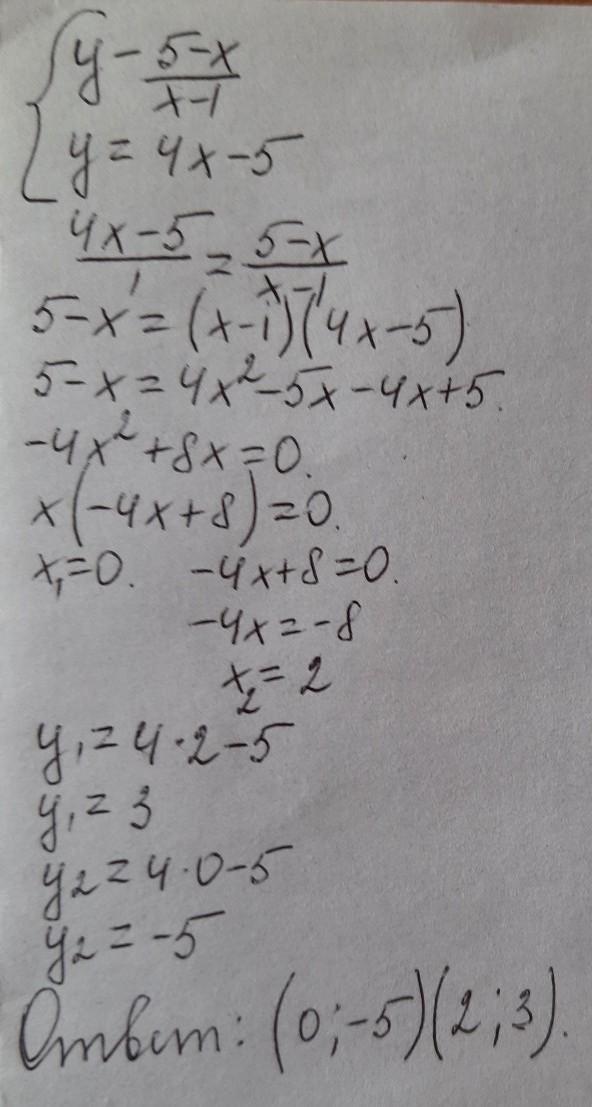 { y - (5-x)/(x-1)
y = 4x-5
(4x-5)/1 = (5-x)/(x-1)
5-x = (x-1)(4x-5)
5-x = 4x²-5x-4x+5.
-4x²+8x=0.
x(-4x+8)=0.
x₁=0. -4x+8=0.
-4x=-8
x₂=2
y₁=4·2-5
y₁=3
y₂=4·0-5
y₂=-5
Ответ: (0;-5)(2;3).